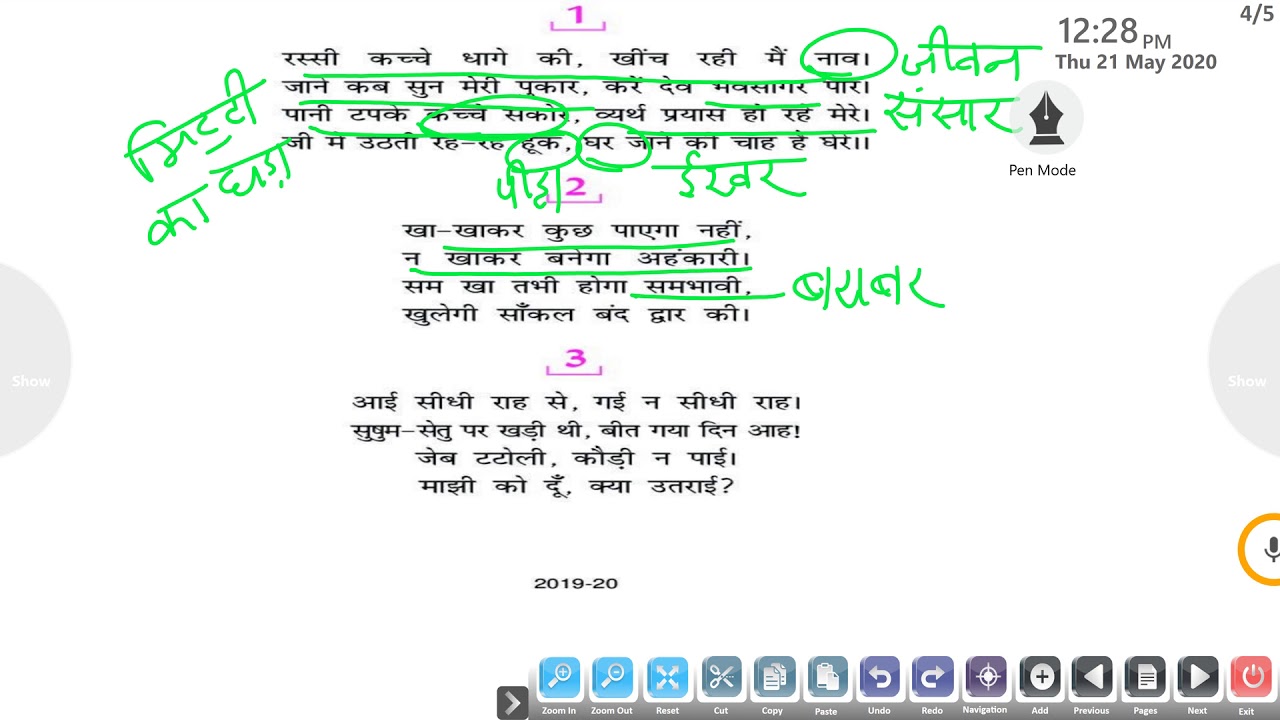 4/5
12:28 PM
Thu 21 May 2020
Pen Mode
1
रस्सी कच्चे धागे की, खींच रही मैं नाव।
जाने कब सुन मेरी पुकार, करें देव भवसागर पार।
पानी टपके कच्चे सकोरे, व्यर्थ प्रयास हो रहे मेरे।
जी में उठती रह-रह हूक, घर जाने की चाह है घेरे।।
जीवन
संसार
मिट्टी
का घड़ा
पीड़ा
ईश्वर
2
खा-खाकर कुछ पाएगा नहीं,
न खाकर बनेगा अहंकारी।
सम खा तभी होगा समभावी,
खुलेगी साँकल बंद द्वार की।
बराबर
3
आई सीधी राह से, गई न सीधी राह।
सुषुम-सेतु पर खड़ी थी, बीत गया दिन आह!
जेब टटोली, कौड़ी न पाई।
माझी को दूँ, क्या उतराई?
Show
Show
2019-20
Zoom In Zoom Out Reset Cut Copy Paste Undo Redo Navigation Add Previous Pages Next Exit